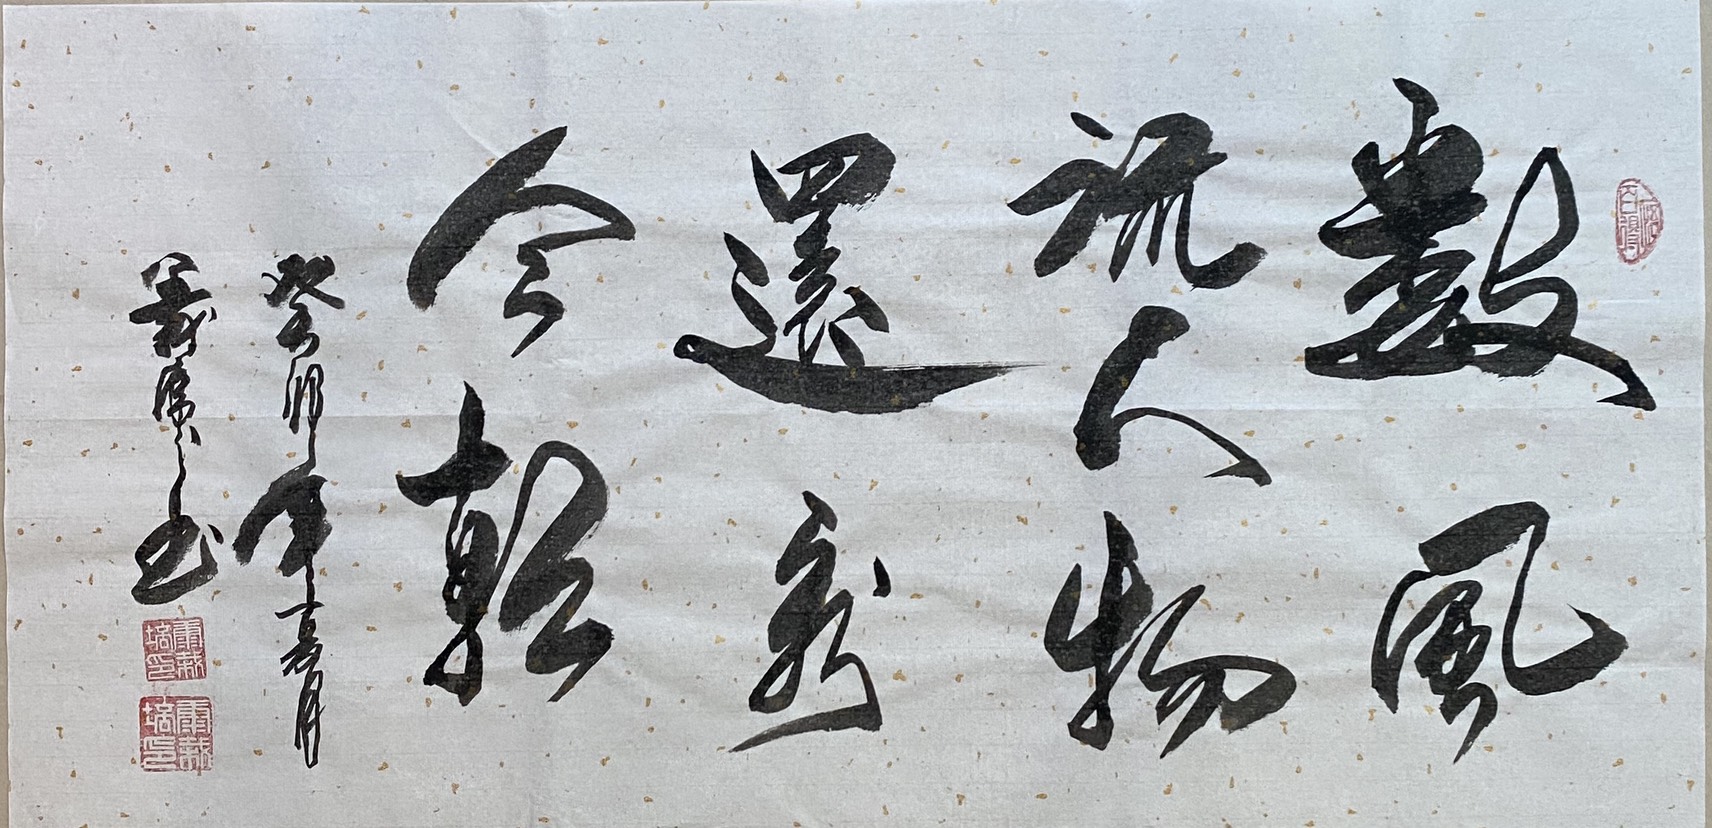 數風
流人物
還看
今朝
癸卯年夏月
书